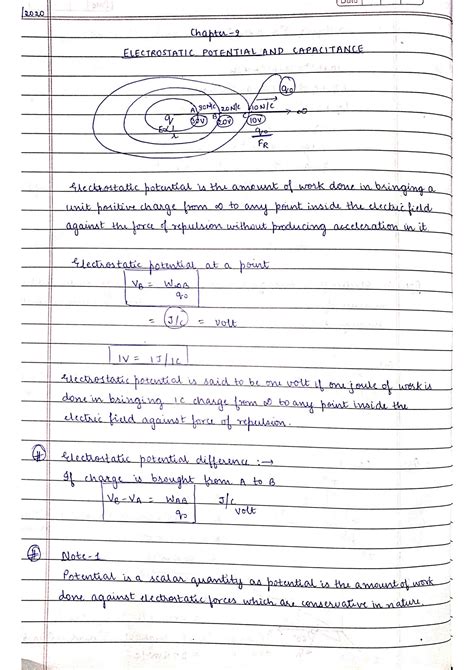 /2020
Chapter-2
ELECTROSTATIC POTENTIAL AND CAPACITANCE
q₀
A 30N/C 20N/C 10N/C
q 30V B 20V C 10V ∞
q₀
F_R
Electrostatic potential is the amount of work done in bringing a
unit positive charge from ∞ to any point inside the electric field
against the force of repulsion without producing acceleration in it.
Electrostatic potential at a point
V_B = W_∞B / q₀
= J/C = volt
1V = 1J/1C
Electrostatic potential is said to be one volt if one joule of work is
done in bringing 1C charge from ∞ to any point inside the
electric field against force of repulsion.
# Electrostatic potential difference :→
If charge is brought from A to B
V_B - V_A = W_AB / q₀ J/C volt
# Note-1
Potential is a scalar quantity as potential is the amount of work
done against electrostatic forces which are conservative in nature.